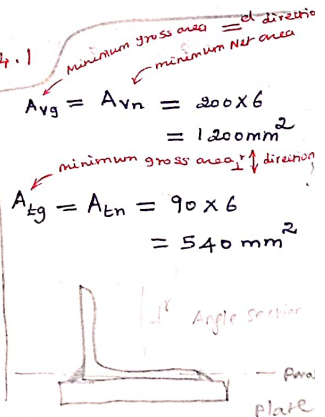 4.1
minimum gross area = el direction
minimum Net area
Avg = Avn = 200×6
= 1200mm²
minimum gross area ⊥r ↕ direction
Atg = Atn = 90×6
= 540 mm²
⊥r Angle section
Para
Plate